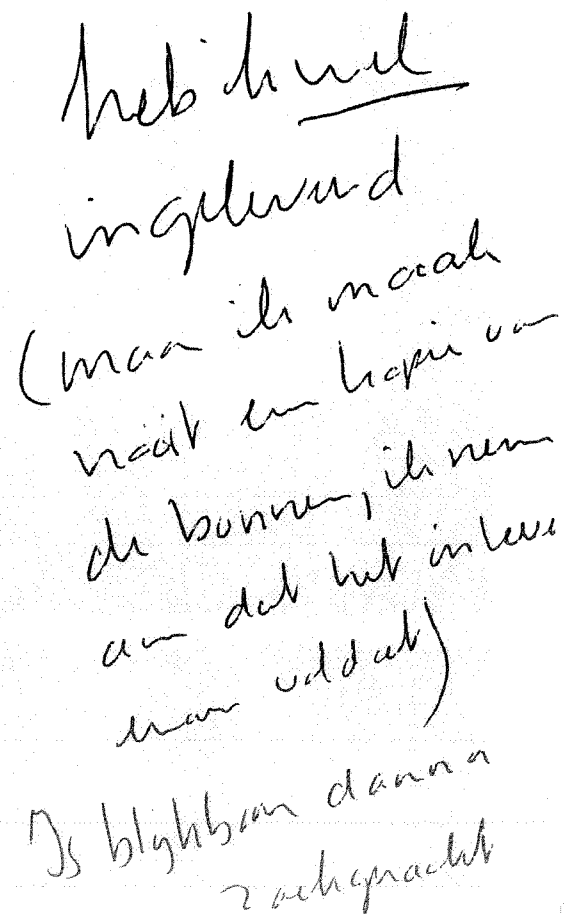 heb ik wel
ingeleverd
(maar ik maak
nóóit een kopie van
de bonnen, ik neem
aan dat het inleve
ervan voldoet)
Is blijkbaar daarna
zoekgeraakt